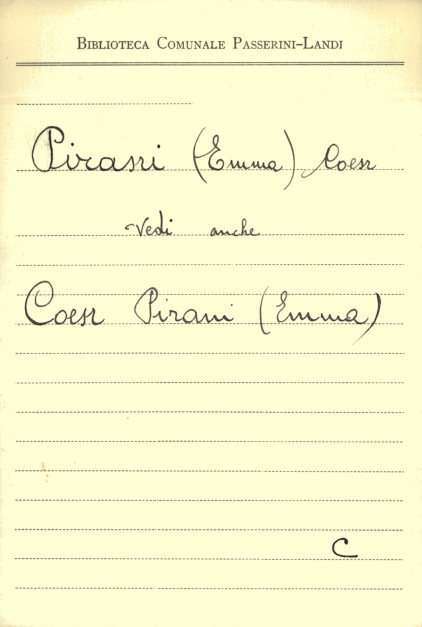 BIBLIOTECA COMUNALE PASSERINI-LANDI
Pirani (Emma) Coen
Vedi anche
Coen Pirani (Emma)
C